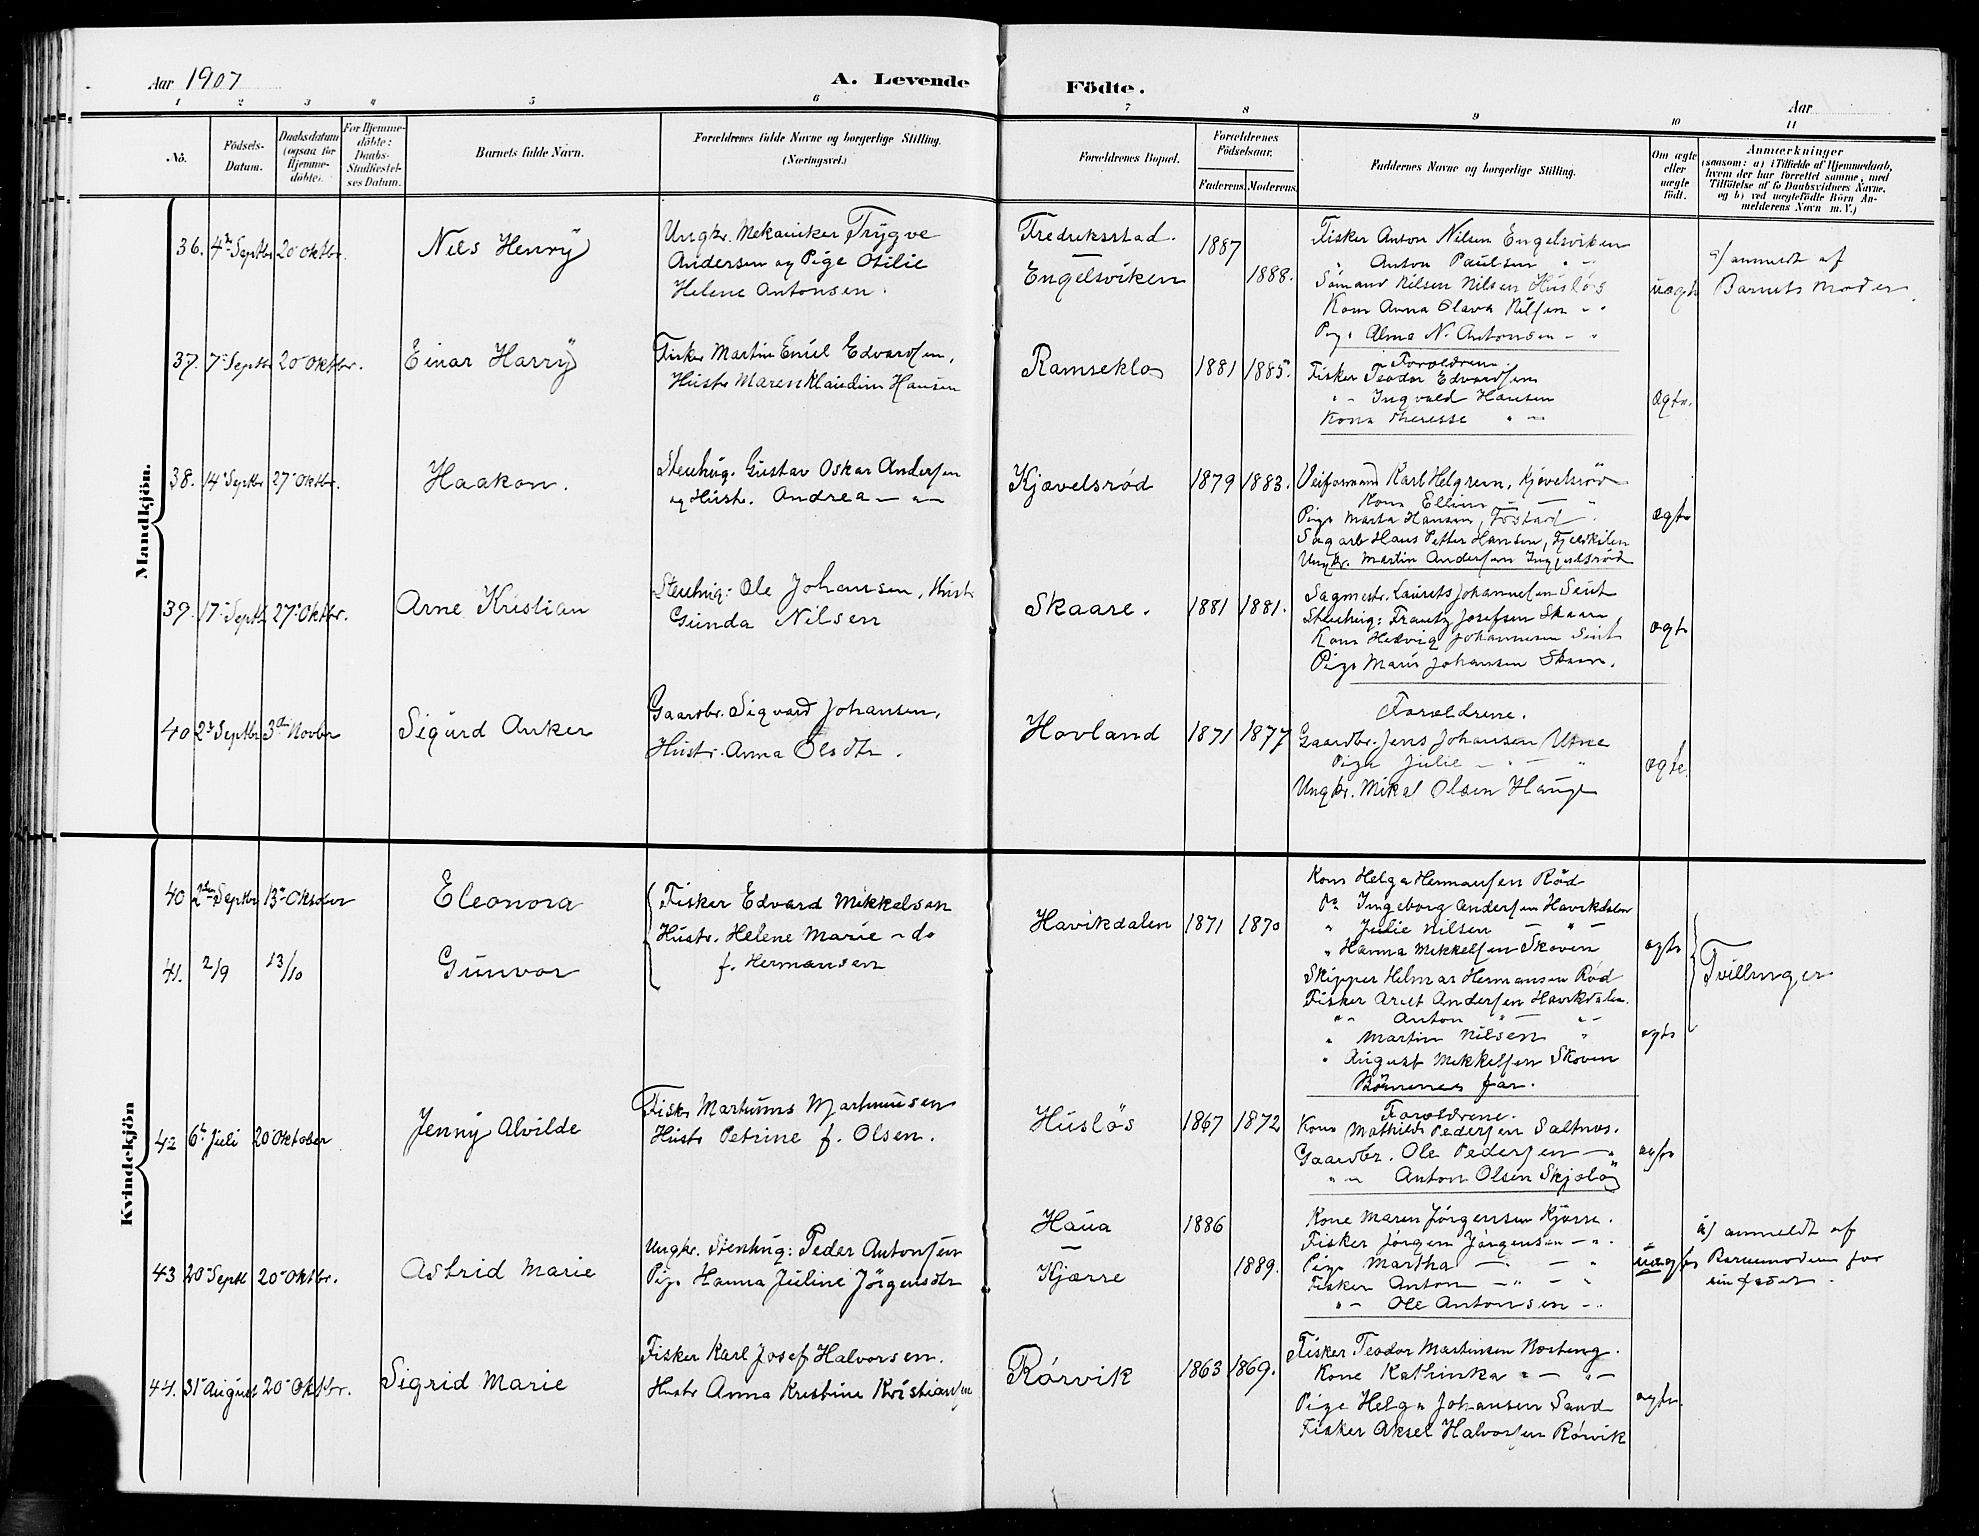 Aar 1907
A. Levende
Födte.
Aar
1 2 3 4 5 6 7 8 9 10 11
No.
Födsels-
Datum.
Daabsdatum
(ogsaa for
Hjemme-
döbte).
For Hjemme-
döbte:
Daabs-
Stadfæstel-
ses Datum.
Barnets fulde Navn.
Forældrenes fulde Navne og borgerlige Stilling.
(Næringsvei.)
Forældrenes Bopæl.
Forældrenes
Födselsaar.
Faderens. Moderens.
Faddernes Navne og borgerlige Stilling.
Om ægte
eller
uægte
födt.
Anmærkninger
(saasom: a) i Tilfælde af Hjemmedaab,
hvem der har forrettet samme, med
Tilföielse af to Daabsvidners Navne,
og b) ved uægtefödte Börn An-
melderens Navn m. V.)
Mandkjön.
36. 4de Septbr 20 Oktbr. Nils Henrÿ
Ungkr. Mekaniker Trygve
Andersen og Pige Otilie
Helene Antonsen.
Fredriksstad.
Engelsviken
1887
1888.
Fisker Anton Nilsen Engelsviken
" Anton Paulsen " -
Sömand Nilsen Nilsen Husløs
Kone Anna Olava Nilsen - "
Pige Alma N. Antonsen - "
uægte
a) anmeldt af
Barnets Moder.
37. 7de Septbr 20 Oktbr. Einar Harrÿ
Fisker Martin Emil Edvardsen,
Hustr Maren Klaudine Hansen
Ramseklo 1881 1885.
Forældrene.
Fisker Teodor Edvardsen
" - Ingvald Hansen
Kona Theresse " -
ægte.
38. 14de Septbr 27 Oktbr. Haakon.
Stenhug. Gustav Oskar Andersen
og Hustr. Andrea - " -
Kjævelsrød 1879 1883.
Veiformand Karl Helgren, Kjævelsrød
Kona Ellen - "
Pige Marta Hansen,
Sagarb Hans Petter Hansen,
Ungkr. Martin Andersen
ægte
39. 17de Septb 27 Oktbr. Arne Kristian
Stenhug. Ole Johansen, Hustr
Gunda Nilsen
Skaare. 1881 1881.
Sagmestr. Laurits Johannesen
Stenhug: Frantz Josefsen Skaare,
Kone Hedvig Johannesen
Pige Marie Johansen Skaare.
ægte
40 2de Septbr 3die Novbr Sigurd Anker
Gaardbr. Sigvard Johansen,
Hustr. Anna Olsdtr.
Hovland 1871 1877
Forældrene.
Gaardbr. Jens Johansen Utne
Pige Julie - " - "
Ungkr. Mikal Olsen Hauge
ægte.
Kvindekjön
40 2den Septbr 13de Oktober Eleonora
Fisker Edvard Mikkelsen
Hustr. Helene Marie - do
f. Hermansen
Havikdalen 1871 1870
Kone Helga Hermansen Rød
Do Ingeborg Andersen Havikdalen
" Julie Nilsen - " -
" Hanna Mikkelsen Skoven
ægte
Tvillinger
41. 2/9 13/10 Gunvor
Skipper Helmar Hermansen Rød
Fisker Arelt Andersen Havikdalen.
" - Anton " - " -
" Martin Nilsen "
" August Mikkelsen Skoven
Börnenes far.
ægte
42 6te Juli 20 Oktober Jenny Alvilde
Fisker Martinus Martinusen
Hustr Petrine f. Olsen.
Husløs 1867 1872
Forældrene.
Kone Mathilde Pedersen Saltnes.
Gaardbr. Ole Pedersen - "
" - Anton Olsen
ægte
43 20de Septb 20de Oktbr. Astrid Marie
Ungkr. Stenhug: Peder Antonsen
Pige Hanna Juline Jörgensdtr
Haua
Kjærre
1886
1889.
Kone Maren Jörgensen Kjærre.
Fisker Jörgen Jörgensen - ".
Pige Martha - " - "
Fisker Anton - " - "
" - Ole Antonsen - "
uægte
a) anmeldt af
Barnemoderen for
44. 31te August 20de Oktbr. Sigrid Marie
Fisker Karl Josef Halvorsen.
Hustr Anna Kristine Kristiansen
Rörvik 1863 1869.
Fisker Teodor Martinsen Nosteng.
Kone Kathinka " - " -
Pige Helga Johansen Sand
Fisker Aksel Halvorsen Rörvik
ægte.